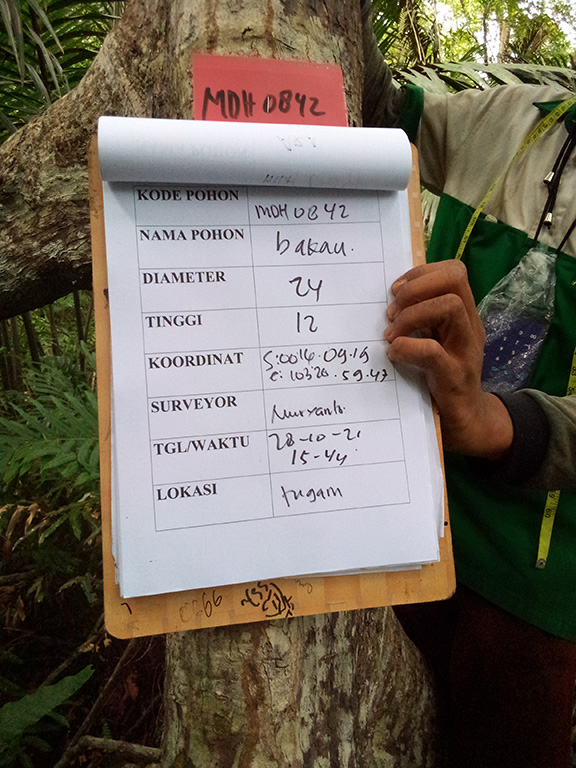 MDH 0842
KODE POHON MDH 0842
NAMA POHON bakau.
DIAMETER 24
TINGGI 12
KOORDINAT S:0014.09.19
E: 10320.59.47
SURVEYOR Nuryanto.
TGL/WAKTU 28-10-21
15-44
LOKASI tugam